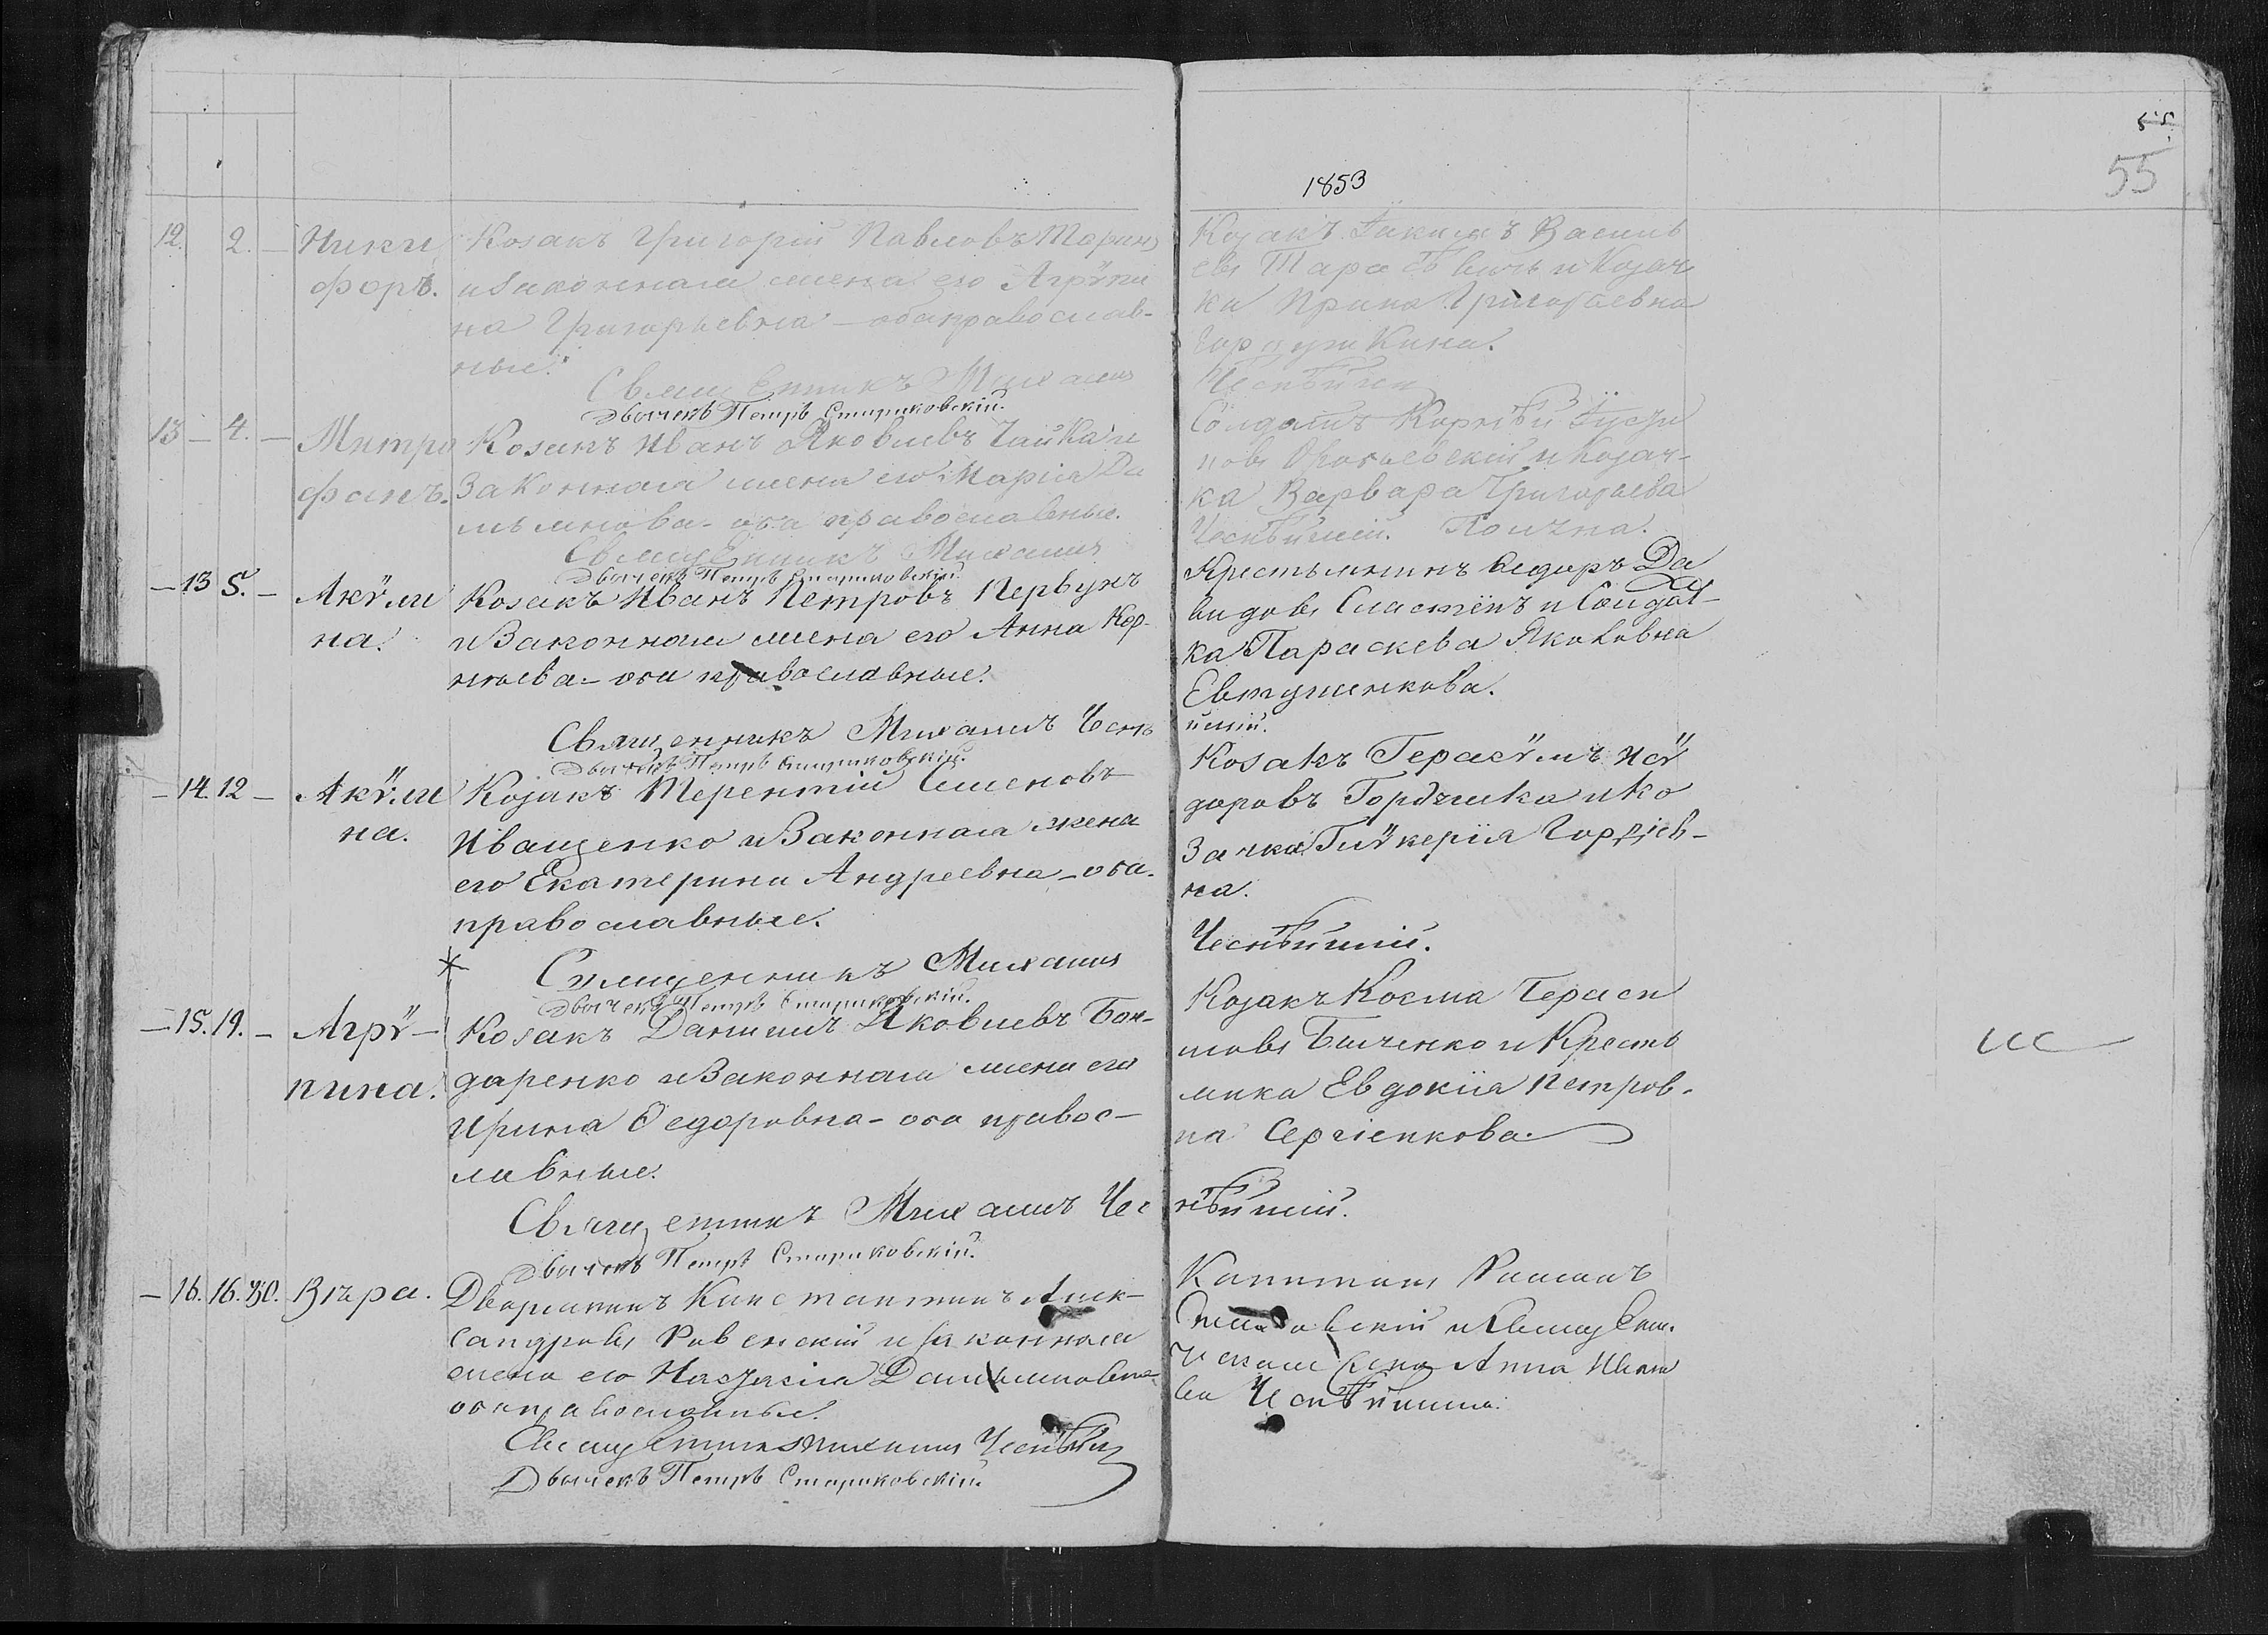 55
55
1853
12. 2. — Ники Козакъ Григорій Павловъ
форъ. и законная жена его Агрѵпи
на Григорьевна — оба православ-
ные.
Священникъ Михаилъ
Дьячекъ Петръ Стариковскій.
Козакъ Іакимъ Василь
евъ и Козач
ка Ирина Григорьевна
Чеснѣйшій
13 — 4. — Митро Козакъ Иванъ Яковлевъ Чайка и
фанъ. Законная жена его Марія Да
мьянова - оба православные.
Священникъ Михаилъ
Дьячекъ Петръ Стариковскій.
Солдатъ Корнѣй
новъ и Козач-
ка Варвара Григорьева
Чеснѣйшій.
— 13 5. — Акѵли Козакъ Иванъ Петровъ Первунъ
на. и Законная жена его Анна Кор-
нѣева - оба православные.
Священникъ Михаилъ Чеснѣ
Дьячекъ Петръ Стариковскій.
Крестьянинъ Ѳедоръ Да
видовъ Сластёнъ и Солдат-
ка Параскева Яковлевна
Евтушенкова.
йшій.
— 14. 12 — Акѵли Козакъ Терентій Семеновъ
на. Иващенко и Законная жена
его Екатерина Андреевна - оба
православные.
Священникъ Михаилъ
Дьячекъ Петръ Стариковскій.
Козакъ Герасѵмъ Исѵ
доровъ и Ко
зачка Глѵкерія Гордіев-
на.
Чеснѣйшій.
— 15. 19. — Агрѵ- Козакъ Даниилъ Яковлевъ Бон-
пина. даренко и Законная жена его
Ирина Ѳедоровна - оба правос-
лавные.
Священникъ Михаилъ Чес
Дьячекъ Петръ Стариковскій.
Козакъ Косма Гераси
мовъ и Кресть
янка Евдокія Петров-
на Сергіенкова.
нѣйшій.
— 16. 16. 30. Вѣра. Дворянинъ Константинъ Алек-
сандровъ Ровенскій и законная
жена его Настасія Дамьяновна
оба православные.
Священникъ Михаилъ Чеснѣйшій
Дьячекъ Петръ Стариковскій.
Капитанъ Романъ
и Священ.
жена Анна Ивано
ва Чеснѣйшая.